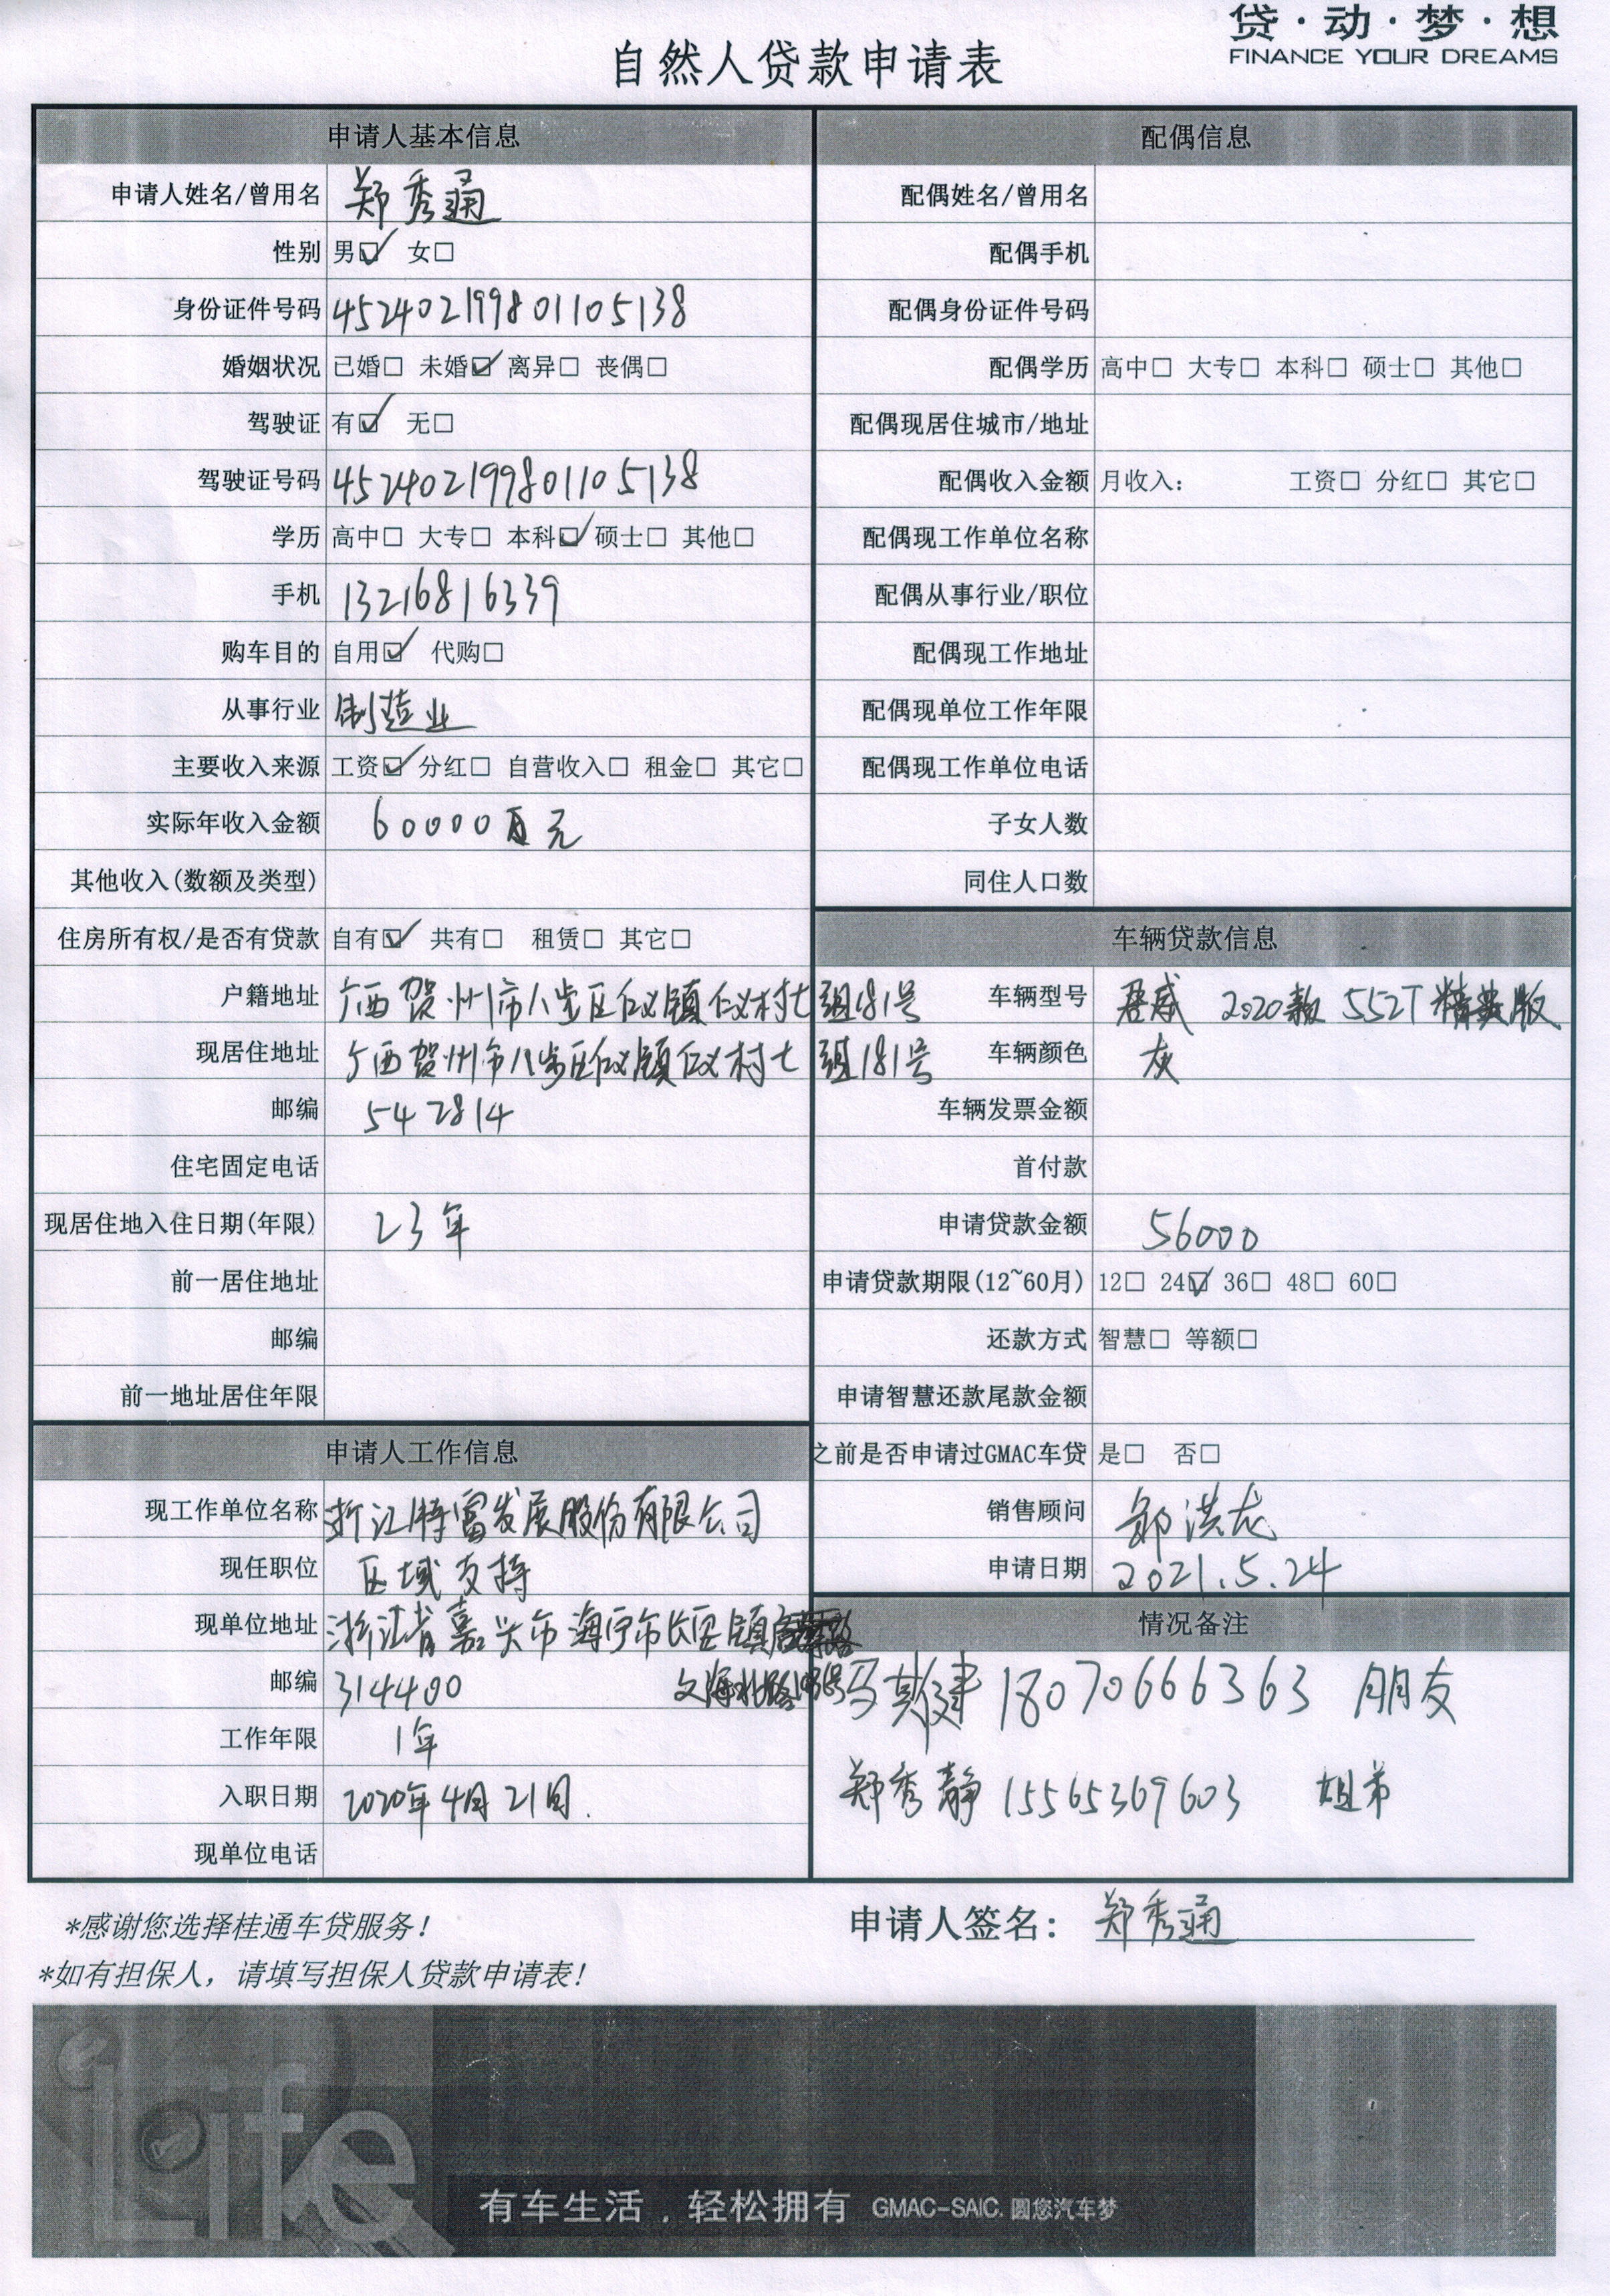 贷·动·梦·想
FINANCE YOUR DREAMS
自然人贷款申请表
申请人基本信息
申请人姓名/曾用名 郑秀通
性别 男☑ 女□
身份证件号码 452402199801105138
婚姻状况 已婚□ 未婚☑ 离异□ 丧偶□
驾驶证 有☑ 无□
驾驶证号码 452402199801105138
学历 高中□ 大专□ 本科☑ 硕士□ 其他□
手机 13216816339
购车目的 自用☑ 代购□
从事行业 制造业
主要收入来源 工资☑ 分红□ 自营收入□ 租金□ 其它□
实际年收入金额 60000 元
其他收入(数额及类型)
住房所有权/是否有贷款 自有☑ 共有□ 租赁□ 其它□
户籍地址 广西贺州市八步区仁义镇仁义村七组181号
现居住地址 广西贺州市八步区仁义镇仁义村七组181号
邮编 542814
住宅固定电话
现居住地入住日期(年限) 23年
前一居住地址
邮编
前一地址居住年限
申请人工作信息
现工作单位名称 浙江特富发展股份有限公司
现任职位 区域支持
现单位地址 浙江省嘉兴市海宁市长安镇
文海北路
邮编 314400
工作年限 1年
入职日期 2020年4月21日.
现单位电话
配偶信息
配偶姓名/曾用名
配偶手机
配偶身份证件号码
配偶学历 高中□ 大专□ 本科□ 硕士□ 其他□
配偶现居住城市/地址
配偶收入金额 月收入: 工资□ 分红□ 其它□
配偶现工作单位名称
配偶从事行业/职位
配偶现工作地址
配偶现单位工作年限
配偶现工作单位电话
子女人数
同住人口数
车辆贷款信息
车辆型号 君威 2020款 552T 精英版
车辆颜色 灰
车辆发票金额
首付款
申请贷款金额 56000
申请贷款期限(12~60月) 12□ 24☑ 36□ 48□ 60□
还款方式 智慧□ 等额□
申请智慧还款尾款金额
之前是否申请过GMAC车贷 是□ 否□
销售顾问 邹洪龙
申请日期 2021.5.24
情况备注
18070666363 朋友
郑秀静 15565369603 姐弟
*感谢您选择桂通车贷服务!
*如有担保人，请填写担保人贷款申请表!
申请人签名: 郑秀通
Life
有车生活，轻松拥有 GMAC-SAIC. 圆您汽车梦